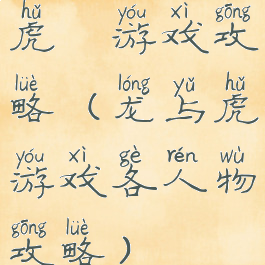 hǔ yóu xì gōng
虎 游戏攻
lüè lóng yǔ hǔ
略（龙与虎
yóu xì gè rén wù
游戏各人物
gōng lüè
攻略）